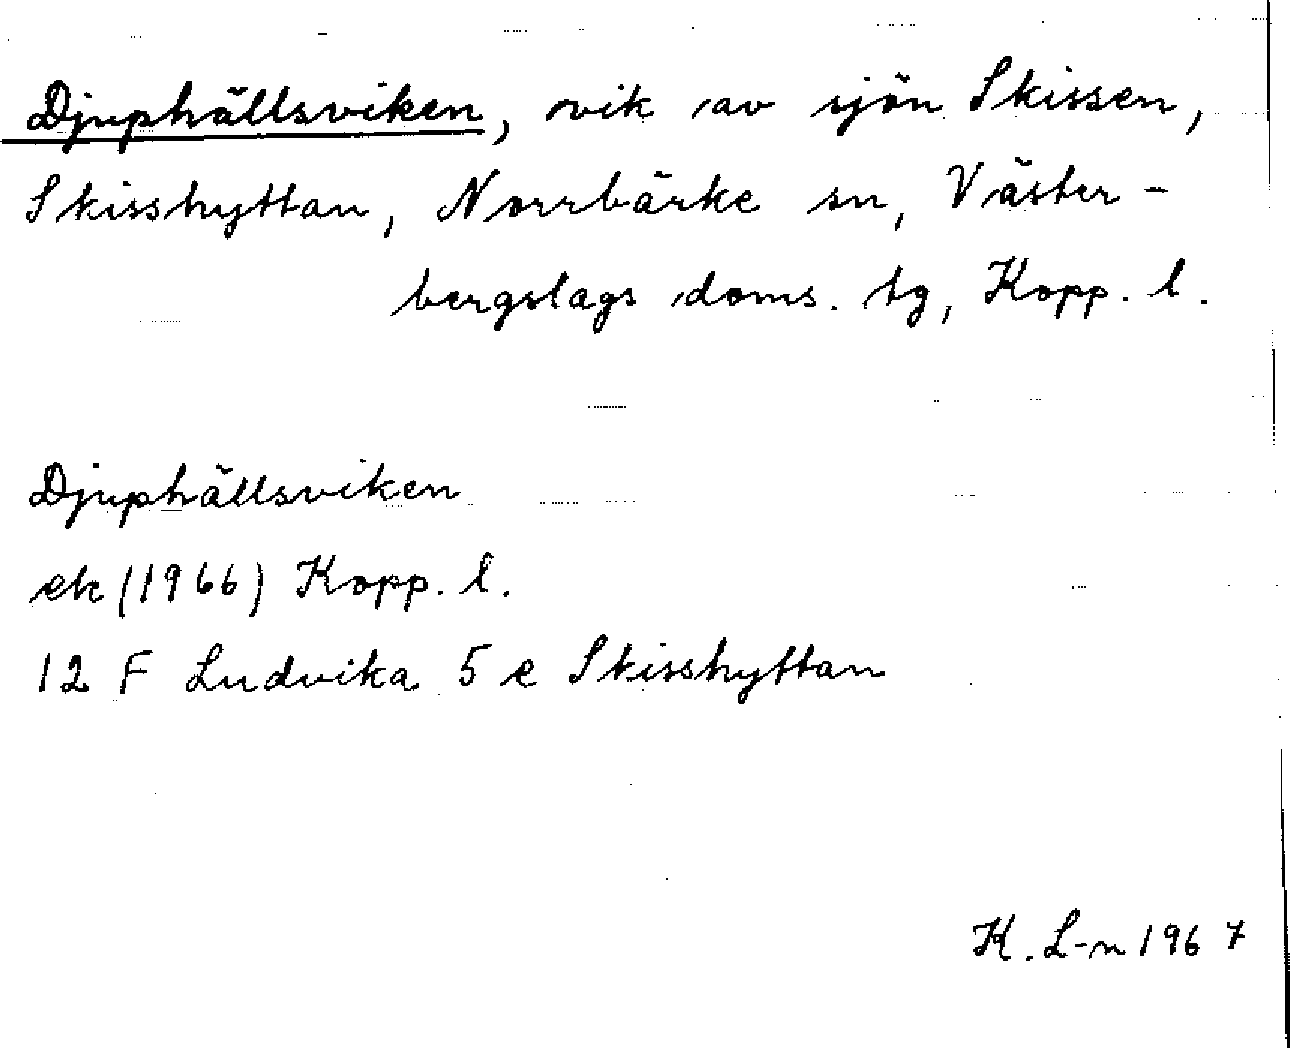 Djuphällsviken, vik av sjön Skissen,
Skisshyttan, Norrbärke sn, Väster-
bergslags doms. tg, Kopp. l.
Djuphällsviken
ek (1966) Kopp. l.
12 F Ludvika 5 e Skisshyttan
K. L-n 1967